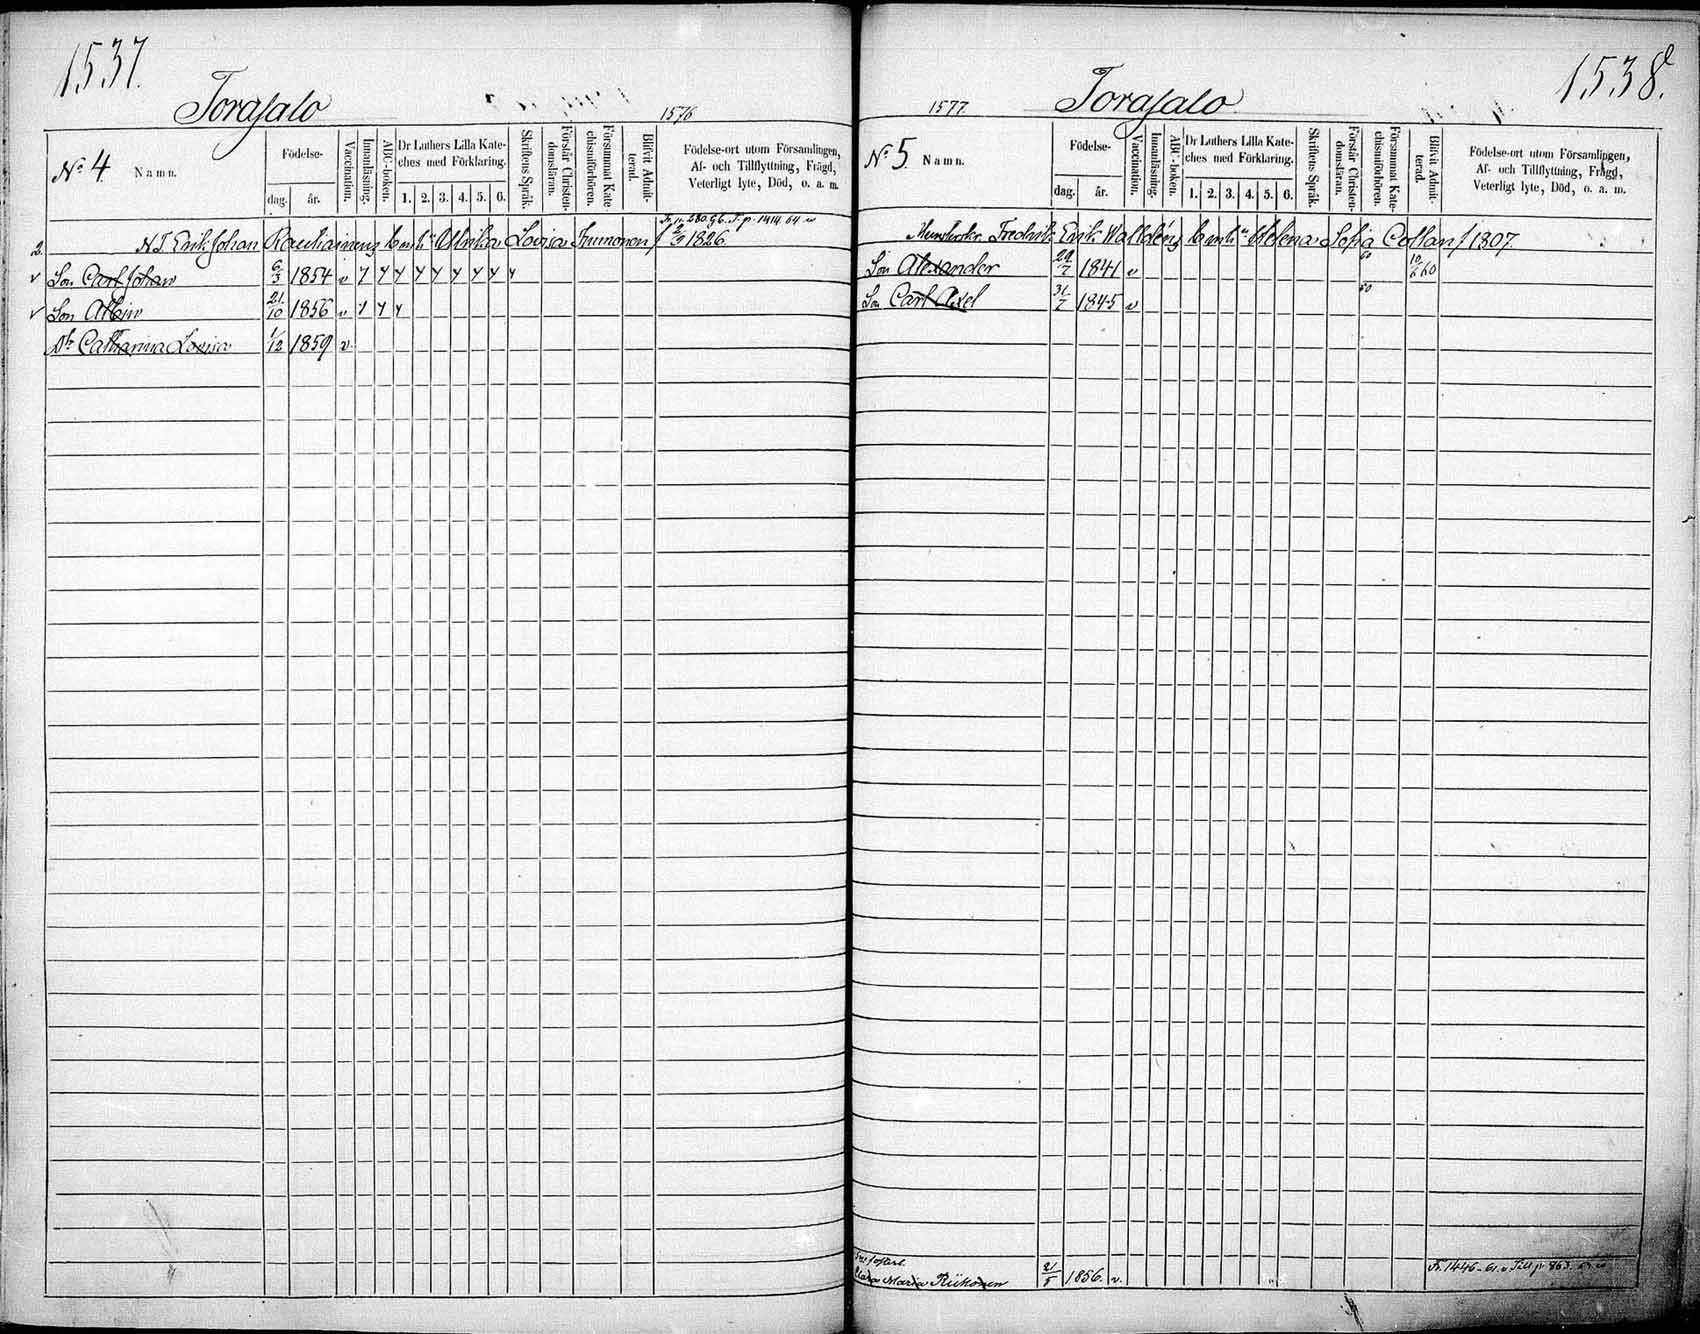 1537.
Torasalo
1576
No 4
Namn.
Födelse-
dag.
år.
Vaccination.
Innanläsning.
ABC-boken.
Dr Luthers Lilla Kate-
ches med Förklaring.
1. 2. 3. 4. 5. 6.
Skriftens Språk.
Förstår Christen-
domsläran.
Försummat Kate-
chismiförhören.
Blifvit Admit-
terad.
Födelse-ort utom Församlingen,
Af- och Tillflyttning, Frägd,
Veterligt lyte, Död, o. a. m.
Erik Johan Rautiainens Ulrika Lovisa Immonen f 2/9 1826.
v Son Carl Johan 6/3 1854 v y y y y y y y y y
v Son Albin 21/10 1856 v y y y
Dr Catharina Lovisa 1/12 1859 v
1538.
Torasalo
1577.
No 5.
Namn.
Födelse-
dag.
år.
Vaccination.
Innanläsning.
ABC-boken.
Dr Luthers Lilla Kate-
ches med Förklaring.
1. 2. 3. 4. 5. 6.
Skriftens Språk.
Förstår Christen-
domsläran.
Försummat Kate-
chismiförhören.
Blifvit Admit-
terad.
Födelse-ort utom Församlingen,
Af- och Tillflyttning, Frägd,
Veterligt lyte, Död, o. a. m.
Fredrik Erik Walléns Helena Sofia Collan f 1807.
Son Alexander 29/7 1841 v 60 10/6 60
Son Carl Axel 31/7 1845 v 60
Maria Riikonen 21/5 1856. v. Fr. 1446-61. Till p. 863.